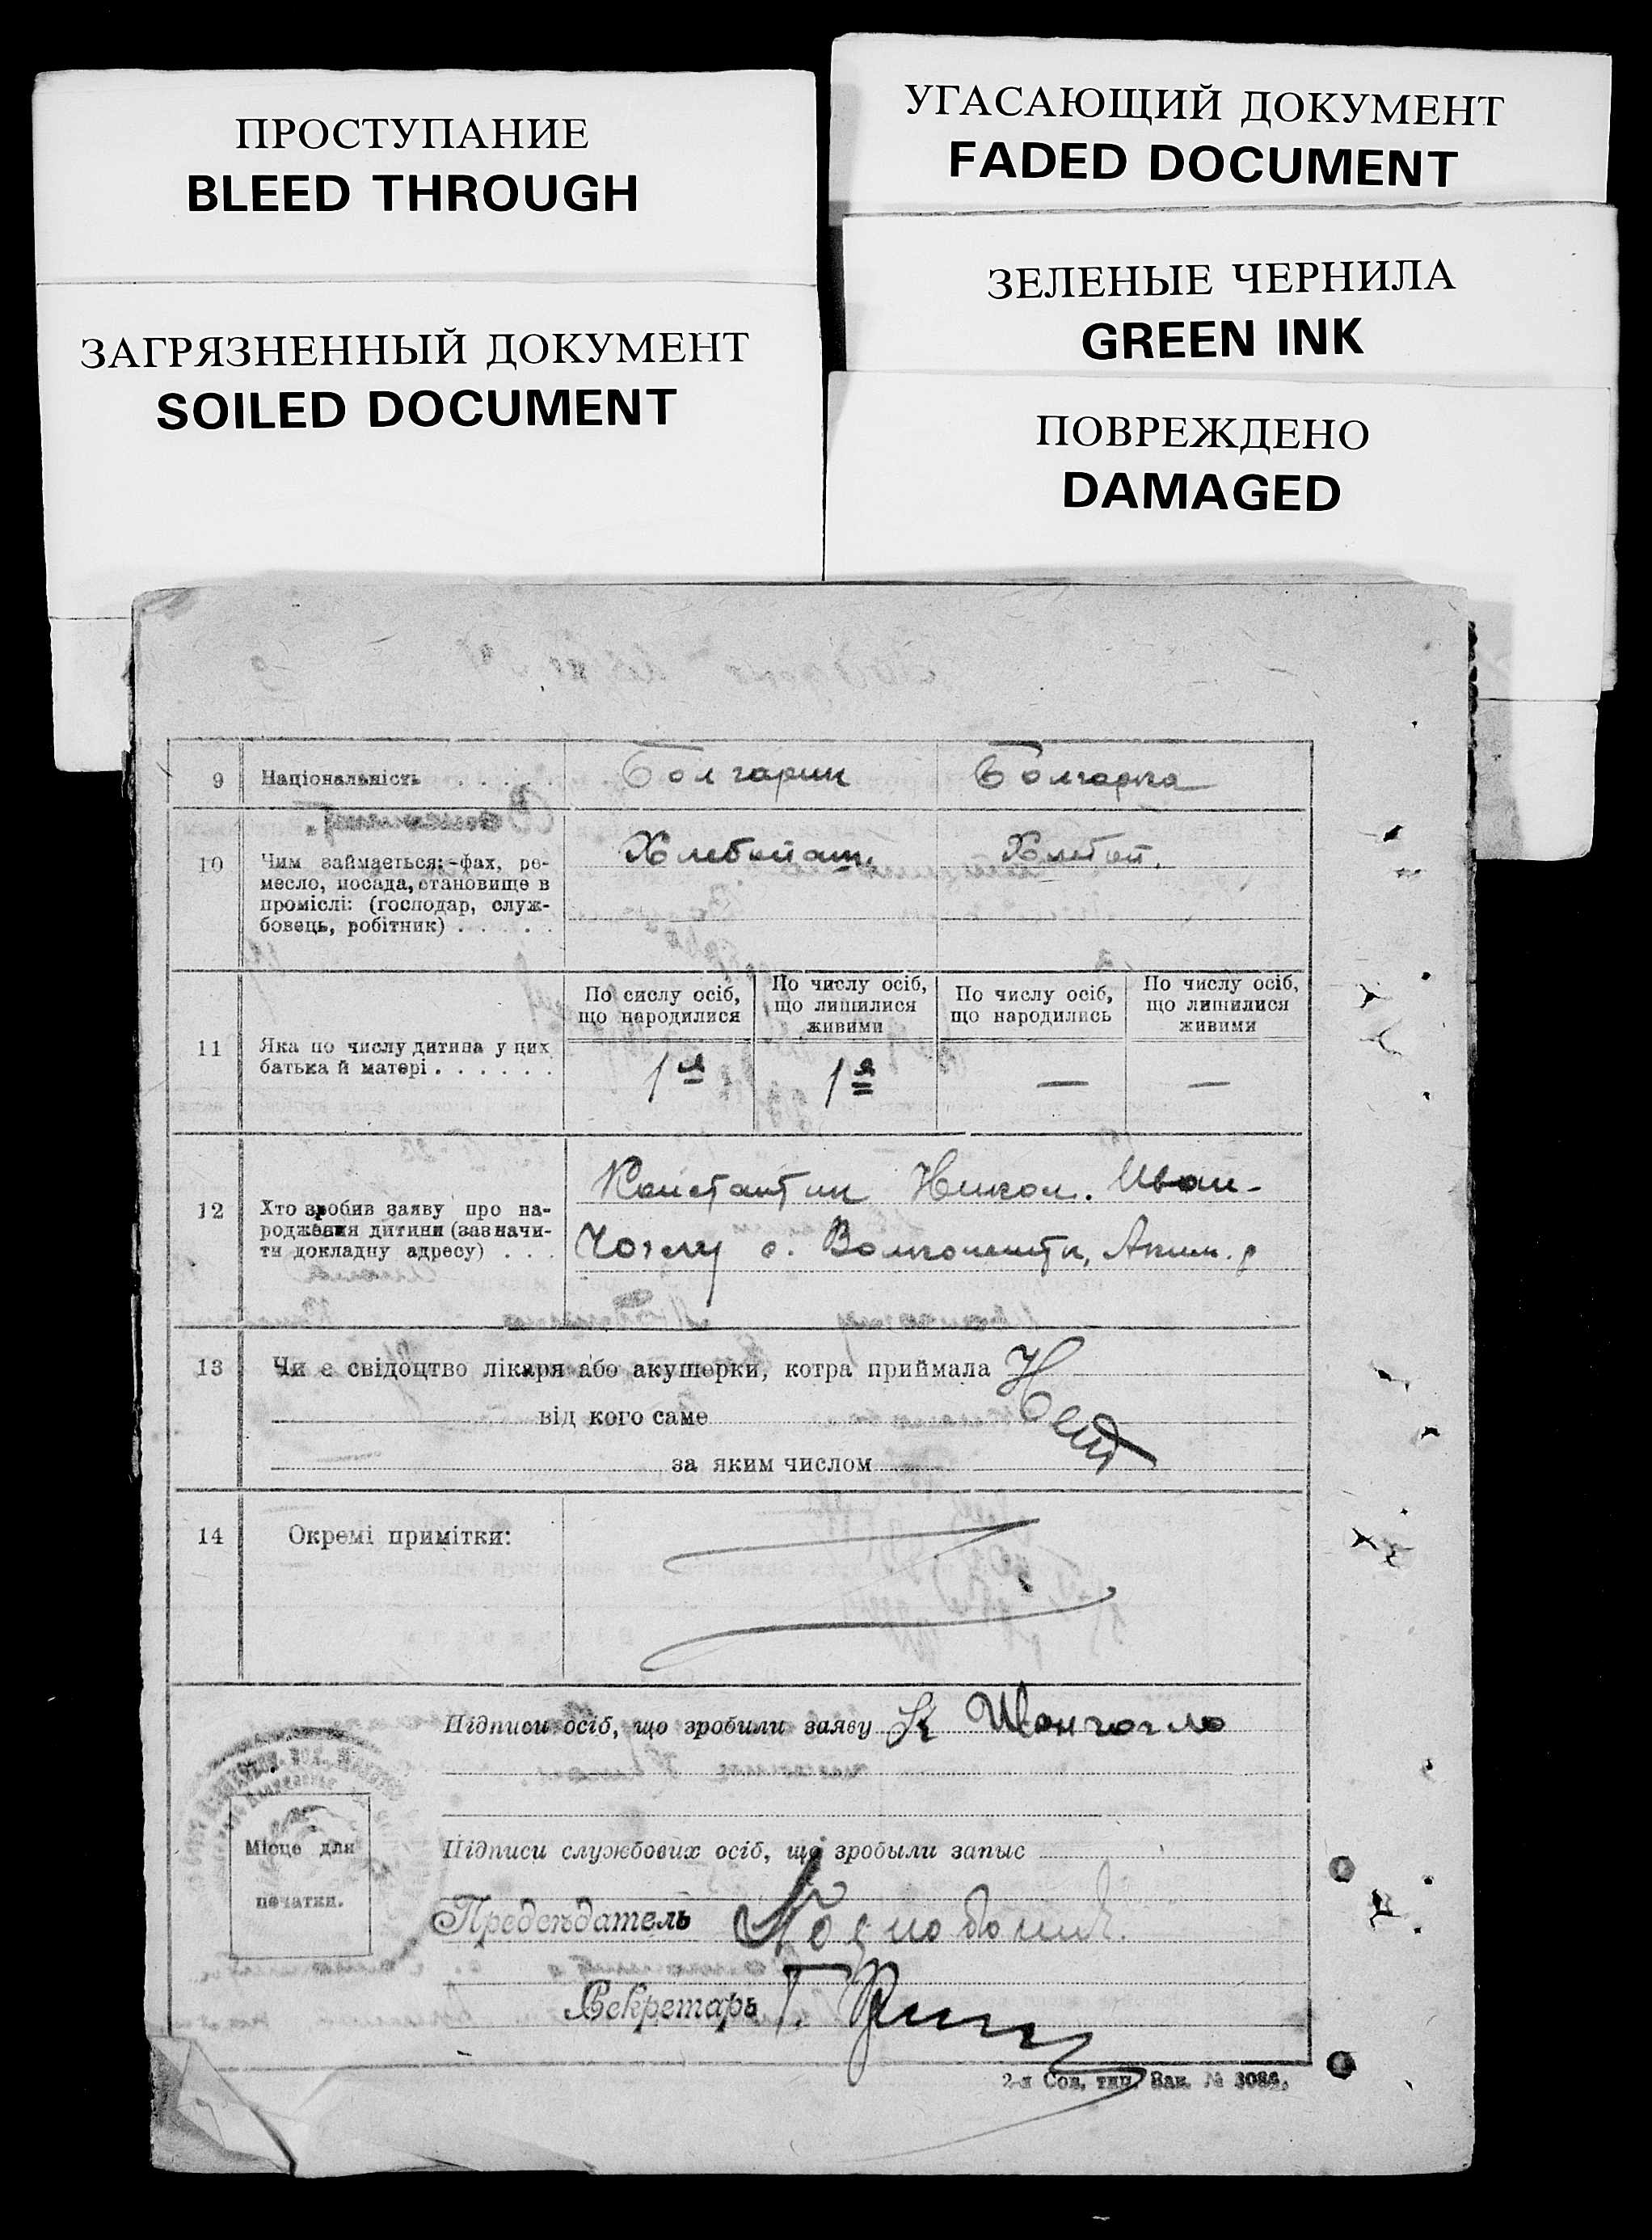 ПРОСТУПАНИЕ
BLEED THROUGH
ЗАГРЯЗНЕННЫЙ ДОКУМЕНТ
SOILED DOCUMENT
УГАСАЮЩИЙ ДОКУМЕНТ
FADED DOCUMENT
ЗЕЛЕНЫЕ ЧЕРНИЛА
GREEN INK
ПОВРЕЖДЕНО
DAMAGED
9 Національність . . . . . Болгарин Болгарка
10 Чим займається:-фах, ре-
месло, посада, становище в
проміслі: (господар, служ-
бовець, робітник) . . . . .
Хлебопаш. Хлебоп.
11 Яка по числу дитина у цих
батька й матері . . . . . .
По сислу осіб,
що народилися
По числу осіб,
що лишилися
живими
По числу осіб,
що народились
По числу осіб,
що лишилися
живими
1я 1я — —
12 Хто зробив заяву про на-
родження дитини (зазначи-
ти докладну адресу) . . .
Константин Никол. Иван-
Чоглу с. Волконешты, Аким. р
13 Чи є свідоцтво лікаря або акушерки, котра приймала Нет
від кого саме
за яким числом
14 Окремі примітки:
Підписи осіб, що зробили заяву К Иванчогло
Підписи службових осіб, що зробыли запыс
Місце для
печатки.
Председатель
Секретарь Г.
2-я Сов. тип. Зак. № 3086.